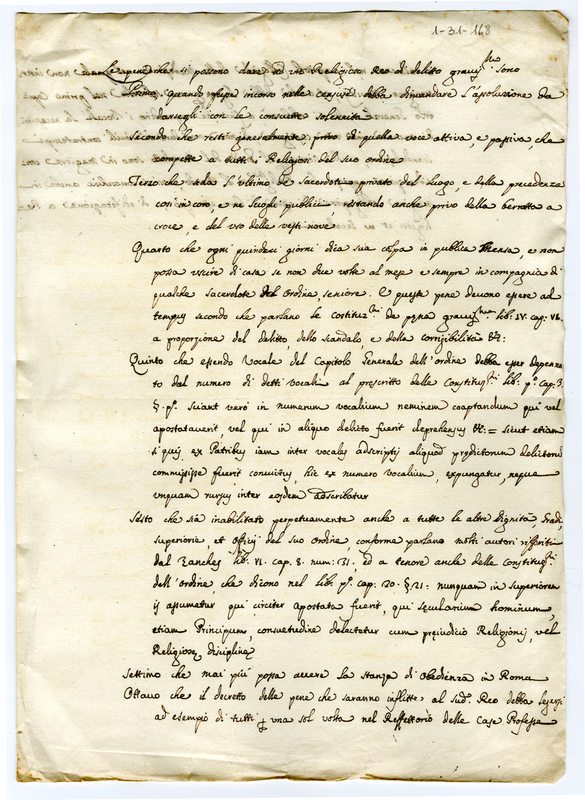 1-31-148
Le pene che si possono dare ad un Religioso Reo di delitto graviss.mo sono
Primo, quando fusse incorso nelle censure debba dimandare l'assoluzione da
darsegli con le consuete solennità
Secondo che resti generalmente privo di quella voce attiva, e passiva che
compette a tutti i Religiosi del suo ordine
Terzo che sieda l'ultimo de Sacerdoti privato del luogo, e della precedenza
così in coro, e ne luoghi publici, restando anche privo della berretta a
croce, e del uso delle vesti nove
Quarto che ogni quindeci giorni dica sua colpa in publica Mensa, e non
possa uscire di casa se non due volte al mese e sempre in compagnia di
qualche sacerdote del Ordine, seniore. E queste pene devono essere ad
tempus secondo che parlano le costituz.ni de pena graviss.ma lib. IV. cap. VI.
a proporzione del delitto, dello scandalo, e della corrigibilità &c:
Quinto che essendo Vocale del Capitolo Generale dell'ordine debba esser depenna
to dal numero di detti vocali al prescritto delle Constituz.ni lib. p.o cap. 3.
§. p.o Sciant verò in numerum vocalium neminem cooptandum qui vel
apostataverit, vel qui in aliquo delicto fuerit deprehensus &c: = Sicut etiam
si quis ex Patribus iam inter vocales adscriptis aliquod prædictorum delictorum
commisisse fuerit convictus, hic ex numero vocalium, expungatur, neque
unquam rursus inter eosdem adscribatur
Sesto che sia inabilitato perpetuamente anche a tutte le altre dignità, Gradi
Superiorie, et Officij del suo Ordine, conforme parlano molti autori riferiti
dal Sanches lib. VI. cap. 8. num: 31. ed a tenore anche delle Constituz.ni
dell'ordine, che dicono nel lib. p.o cap: 20. §. 21: nunquam in superiorem
is assumetur qui circiter apostata fuerit, qui sæcularium hominum,
etiam Principum, consuetudine delectetur cum præiudicio Religionis, vel
Religiosæ disciplinæ
Settimo che mai più possa avere la stanza di obedienza in Roma
Ottavo che il decretto delle pene che saranno inflitte al sud.o Reo debba legersi
ad esempio di tutti p una sol volta nel Reffettorio delle Case Professe